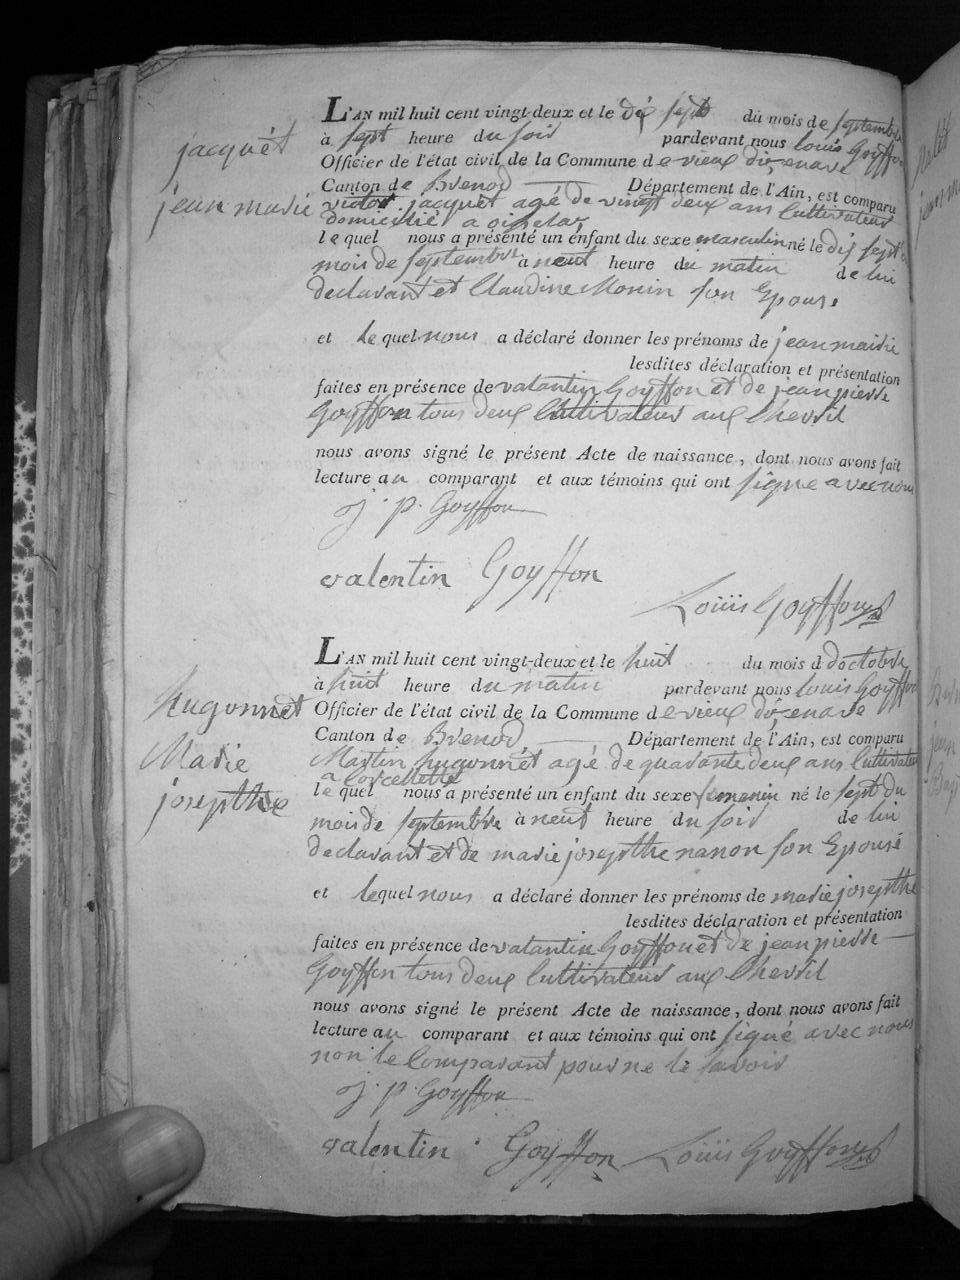 jacquét
jean marie
L'AN mil huit cent vingt-deux et le dix sept du mois de septembre
à sept heure du soir pardevant nous louis Goyffon
Officier de l'état civil de la Commune de vieux dizenave
Canton de Brenod Département de l'Ain, est comparu
victor jacquet agé de vingt deux ans Cultivateur
domicilié a
lequel nous a présenté un enfant du sexe masculin né le dix sept du
mois de septembre à neuf heure du matin de lui
declarant et Claudine Monin son Epouse
et lequel nous a déclaré donner les prénoms de jean maidie
lesdites déclaration et présentation
faites en présence de valantin Goyffon et de jean pierre
Goyffon tous deux Cultivateur aux Chevril
nous avons signé le présent Acte de naissance, dont nous avons fait
lecture au comparant et aux témoins qui ont signe avec nous
j. p. Goyffon
valentin Goyffon
Louis Goyffon
hugonnet
Marie
josepthe
L'AN mil huit cent vingt-deux et le huit du mois doctobre
à huit heure du matin pardevant nous louis Goyffon
Officier de l'état civil de la Commune de vieux dizenave
Canton de Brenod Département de l'Ain, est comparu
Martin hugonnét agé de quarante deux ans Cultivateur
a Corcellette
lequel nous a présenté un enfant du sexe femenin né le sept du
mois de septembre à neuf heure du soir de lui
declarant et de marie josepthe nanon son Epouse
et lequel nous a déclaré donner les prénoms de marie josepthe
lesdites déclaration et présentation
faites en présence de valantin Goyffon et de jean pierre
Goyffon tous deux Cultivateur aux Chevril
nous avons signé le présent Acte de naissance, dont nous avons fait
lecture au comparant et aux témoins qui ont signé avec nous
non le Comparant pour ne le savoir
j. p. Goyffon
valentin Goyffon Louis Goyffon